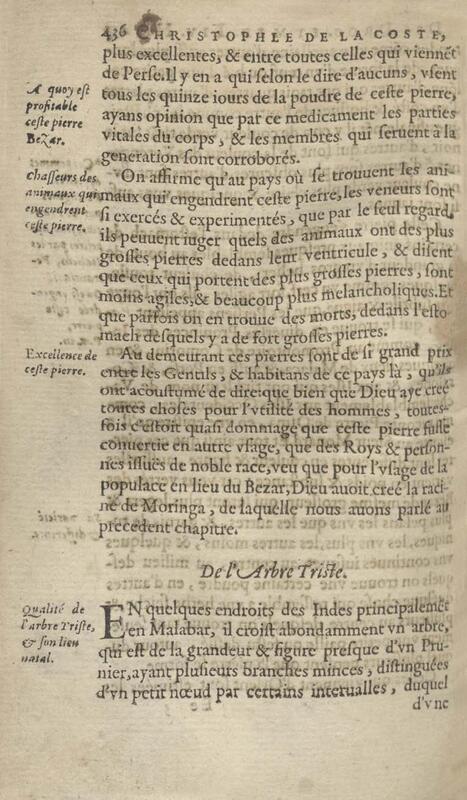 436 CHRISTOPHLE DE LA COSTE,
plus excellentes, & entre toutes celles qui viennẽt
de Perse. Il y en a qui selon le dire d'aucuns, vsent
tous les quinze iours de la poudre de ceste pierre,
ayans opinion que par ce medicament les parties
vitales du corps, & les membres qui seruent à la
generation sont corroborés.
A quoy est
profitable
ceste pierre
Bezar.
On affirme qu'au pays où se trouuent les ani-
maux qui engendrent ceste pierre, les veneurs sont
si exercés & experimentés, que par le seul regard,
ils peuuent iuger quels des animaux ont des plus
grosses pierres dedans leur ventricule, & disent
que ceux qui portent des plus grosses pierres, sont
moins agiles, & beaucoup plus melancholiques. Et
que parfois on en trouue des morts, dedans l'esto-
mach desquels y a de fort grosses pierres.
Chasseurs des
animaux qui
engendrent
ceste pierre.
Au demeurant ces pierres sont de si grand prix
entre les Gentils, & habitans de ce pays là, qu'ils
ont acoustumé de dire: que bien que Dieu aye creé
toutes choses pour l'vtilité des hommes, toutes-
fois c'estoit quasi dommage que ceste pierre fusse
conuertie en autre vsage, que des Roys & person-
nes issues de noble race, veu que pour l'vsage de la
populace en lieu du Bezar, Dieu auoit creé la raci-
ne de Moringa, de laquelle nous auons parlé au
precedent chapitre.
Excellence de
ceste pierre.
De l'Arbre Triste.
EN quelques endroits des Indes principalemẽt
en Malabar, il croist abondamment vn arbre,
qui est de la grandeur & figure presque d'vn Pru-
nier, ayant plusieurs branches minces, distinguées
d'vn petit nœud par certains interualles, duquel
Qualité de
l'arbre Triste,
& son lieu
natal.
d'vne